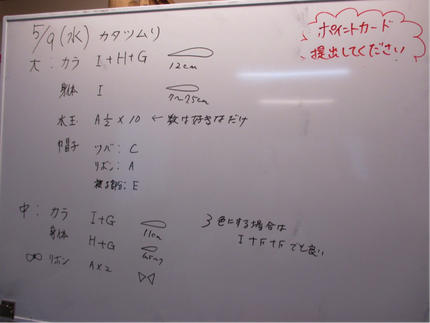 5/9(水) カタツムリ
ポイントカード
提出してください
大: カラ I+H+G 12cm
身体 I 7~7.5cm
水玉 A½×10 ← 数は好きなだけ
帽子 ツバ: C
リボン: A
: E
中: カラ I+G 11cm
身体 H+G 6.5cm
リボン A×2
3色にする場合は
I+F+Fでも良い